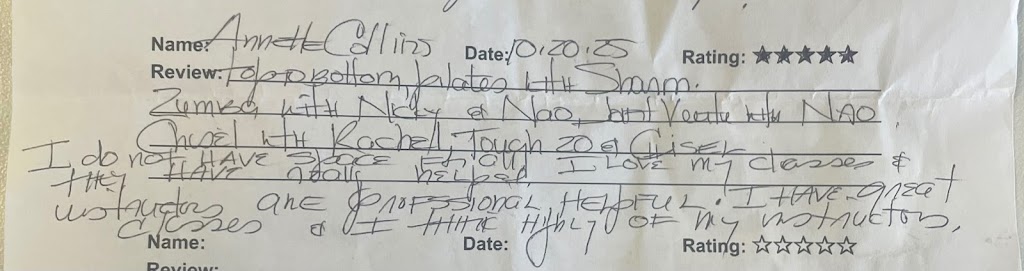 Name: Annette Collins Date: 10.20.25 Rating: ★★★★★
Review: Top to Bottom, Pilates with Sharon.
Zumba with Nicky & Nao, with NAO,
with Rachel, Tough 20 &
I do not HAVE space I LOVE my classes &
they HAVE really helped.
instructors are professional, HELPFUL. I HAVE great
classes & I think highly of my instructors.
Name: Date: Rating: ☆☆☆☆☆
Review: